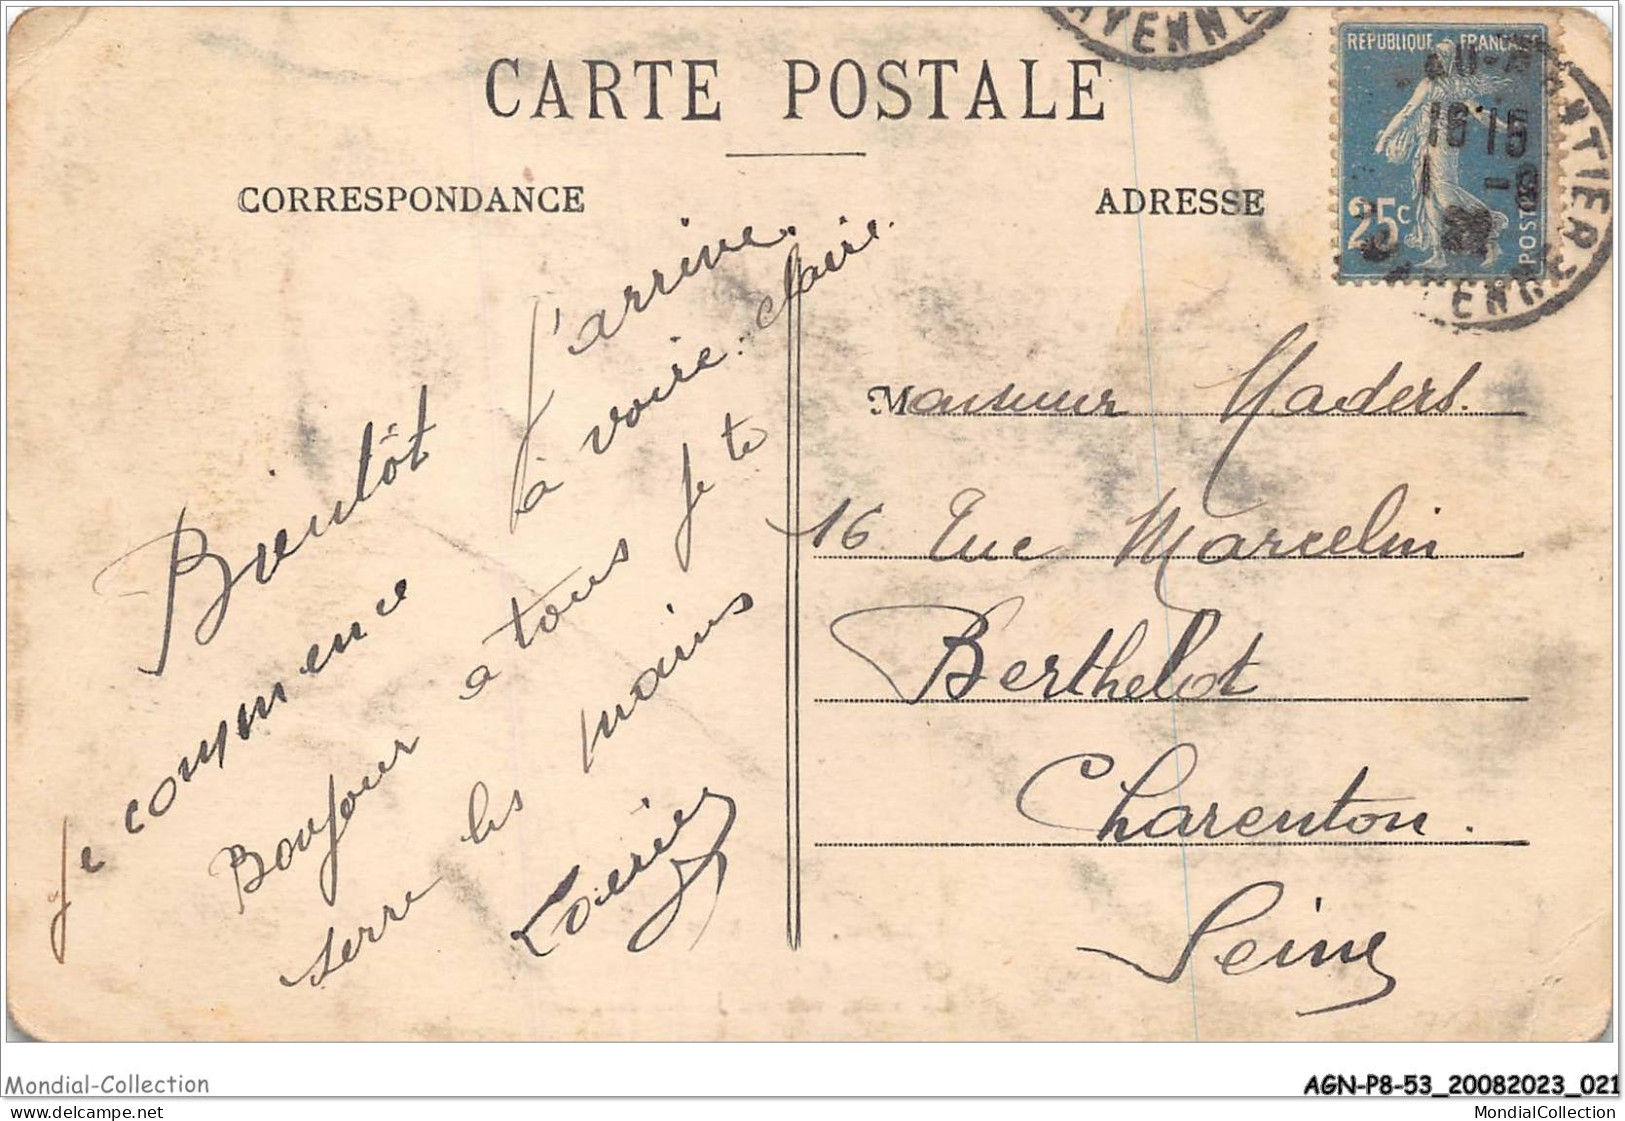 CARTE POSTALE
CORRESPONDANCE
ADRESSE
REPUBLIQUE FRANÇAISE
25c
POSTES
16*15
1 -8
22
MAYENNE
Bientôt j'arrive.
je commence à voire claire.
Bonjour a tous je te
serre les mains
Monsieur Maders.
16 Rue Marcelin
Berthelot
Charenton.
Seine
Mondial-Collection
AGN-P8-53_20082023_021
delcampe.net
MondialCollection